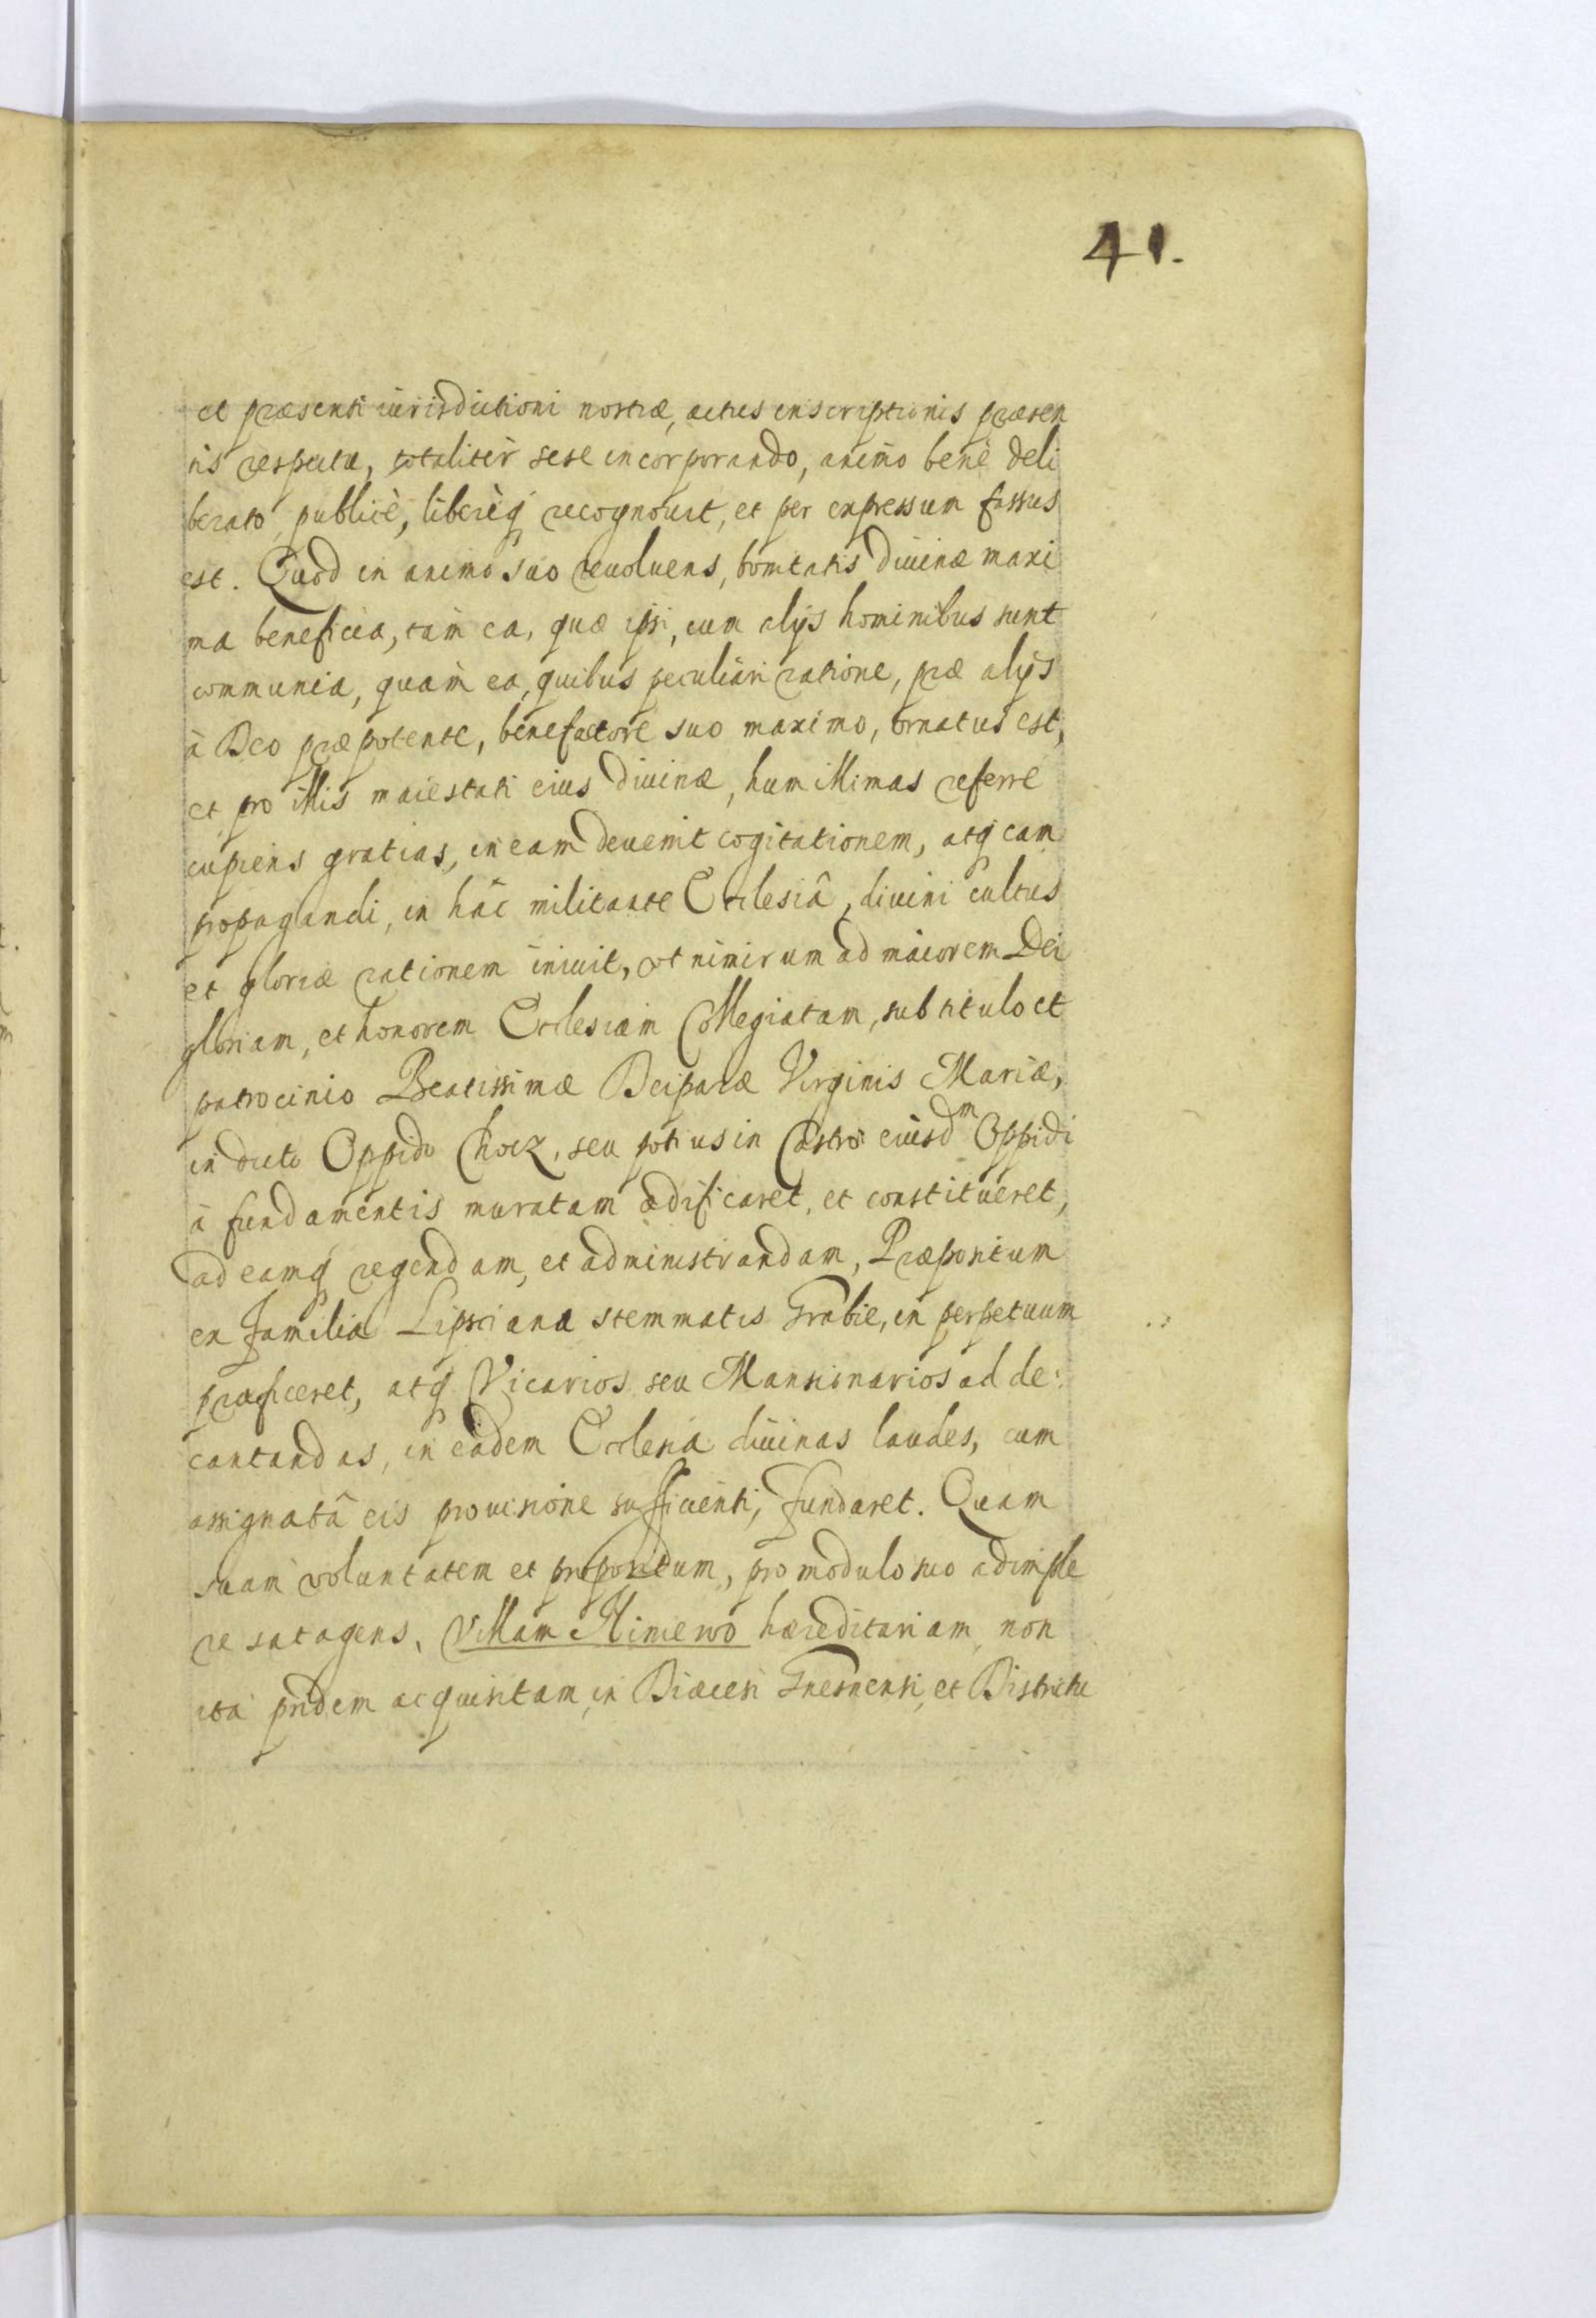 41.
et præsenti iurisdictioni nostræ, actus inscriptionis præsen
tis respectu, totalitèr sese incorporando, animo benè deli
berato, publicè, liberèq́ recognouit, et per expressum fassus
est. Quod in animo suo reuoluens, bonitatis diuinæ maxi
ma beneficia, tàm ea, quæ ipsi, cum alijs hominibus sunt
communia, quàm ea, quibus peculiari ratione, præ alijs
à Deo præpotente, benefactore suo maximo, ornatus est,
et pro illis maiestati eius diuinæ, humillimas referre
cupiens gratias, in eam deuenit cogitationem, atq́ eam
propagandi, in hâc militante Ecclesiâ, diuini cultus
et gloriæ rationem iniuit, vt nimirum ad maiorem Dei
gloriam, et honorem Ecclesiam Collegiatam, sub titulo et
patrocinio Beatissimæ Deiparæ Virginis Mariæ,
in dicto Oppido Chocz, seu potius in Castro eiusdᵐ Oppidi
à fundamentis muratam ædificaret, et constitueret,
ad eamq́ regendam, et administrandam, Præpositum
ex familia Lipsciana stemmatis Grabie, in perpetuum
præficeret, atq́ Vicarios seu Mansionarios ad de:
cantandas, in eâdem Ecclesia diuinas laudes, cum
assignatâ eis prouisione sufficienti, fundaret. Quam
suam voluntatem et propositum, pro modulo suo adimple
re satagens, Villam Niniewo hæreditariam non
ita pridem acquisitam, in Diæcesi Gnesnensi, et Districtu